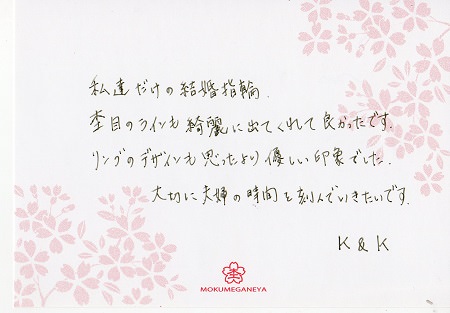 私達だけの結婚指輪.
杢目のラインも綺麗に出てくれて良かったです.
リングのデザインも思ったより優しい印象でした.
大切に夫婦の時間を刻んでいきたいです.
K & K
杢
MOKUMEGANEYA